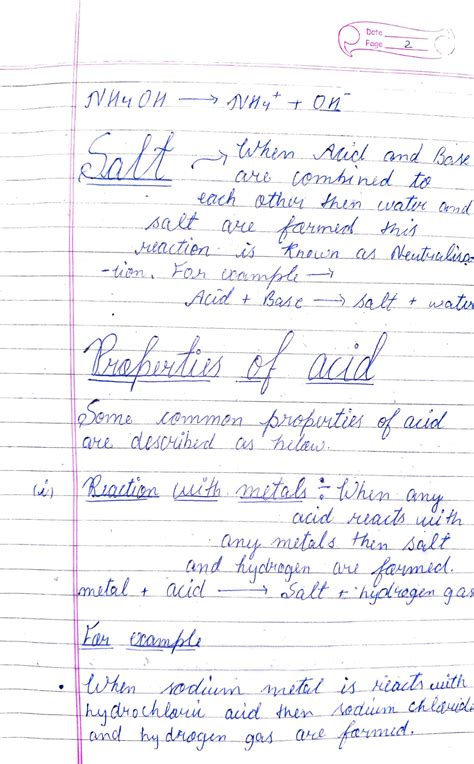 Date
Page 2
NH4OH → NH4+ + OH-
Salt → When Acid and Base
are combined to
each other then water and
salt are formed this
reaction is known as Neutralisa
-tion. For example →
Acid + Base → salt + water
Properties of acid
Some common properties of acid
are described as below.
(i) Reaction with metals ÷ When any
acid reacts with
any metals then salt
and hydrogen are formed.
metal + acid → Salt + hydrogen gas
For example
• When sodium metal is reacts with
hydrochloric acid then sodium chloride
and hydrogen gas are formed.